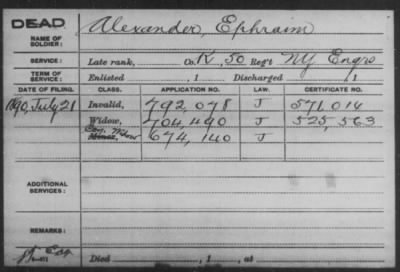 DEAD
NAME OF SOLDIER: Alexander, Ephraim
SERVICE: Late rank, Co. K, 50 Reg't NY Engrs
TERM OF SERVICE: Enlisted , 1 Discharged , 1
DATE OF FILING. CLASS. APPLICATION NO. LAW. CERTIFICATE NO.
1890, July 21 Invalid, 792,078 J 571,014
Widow, 704,490 J 525,563
Con. Widow Minor, 674,140 J
ADDITIONAL SERVICES:
REMARKS:
Died , 1 , at